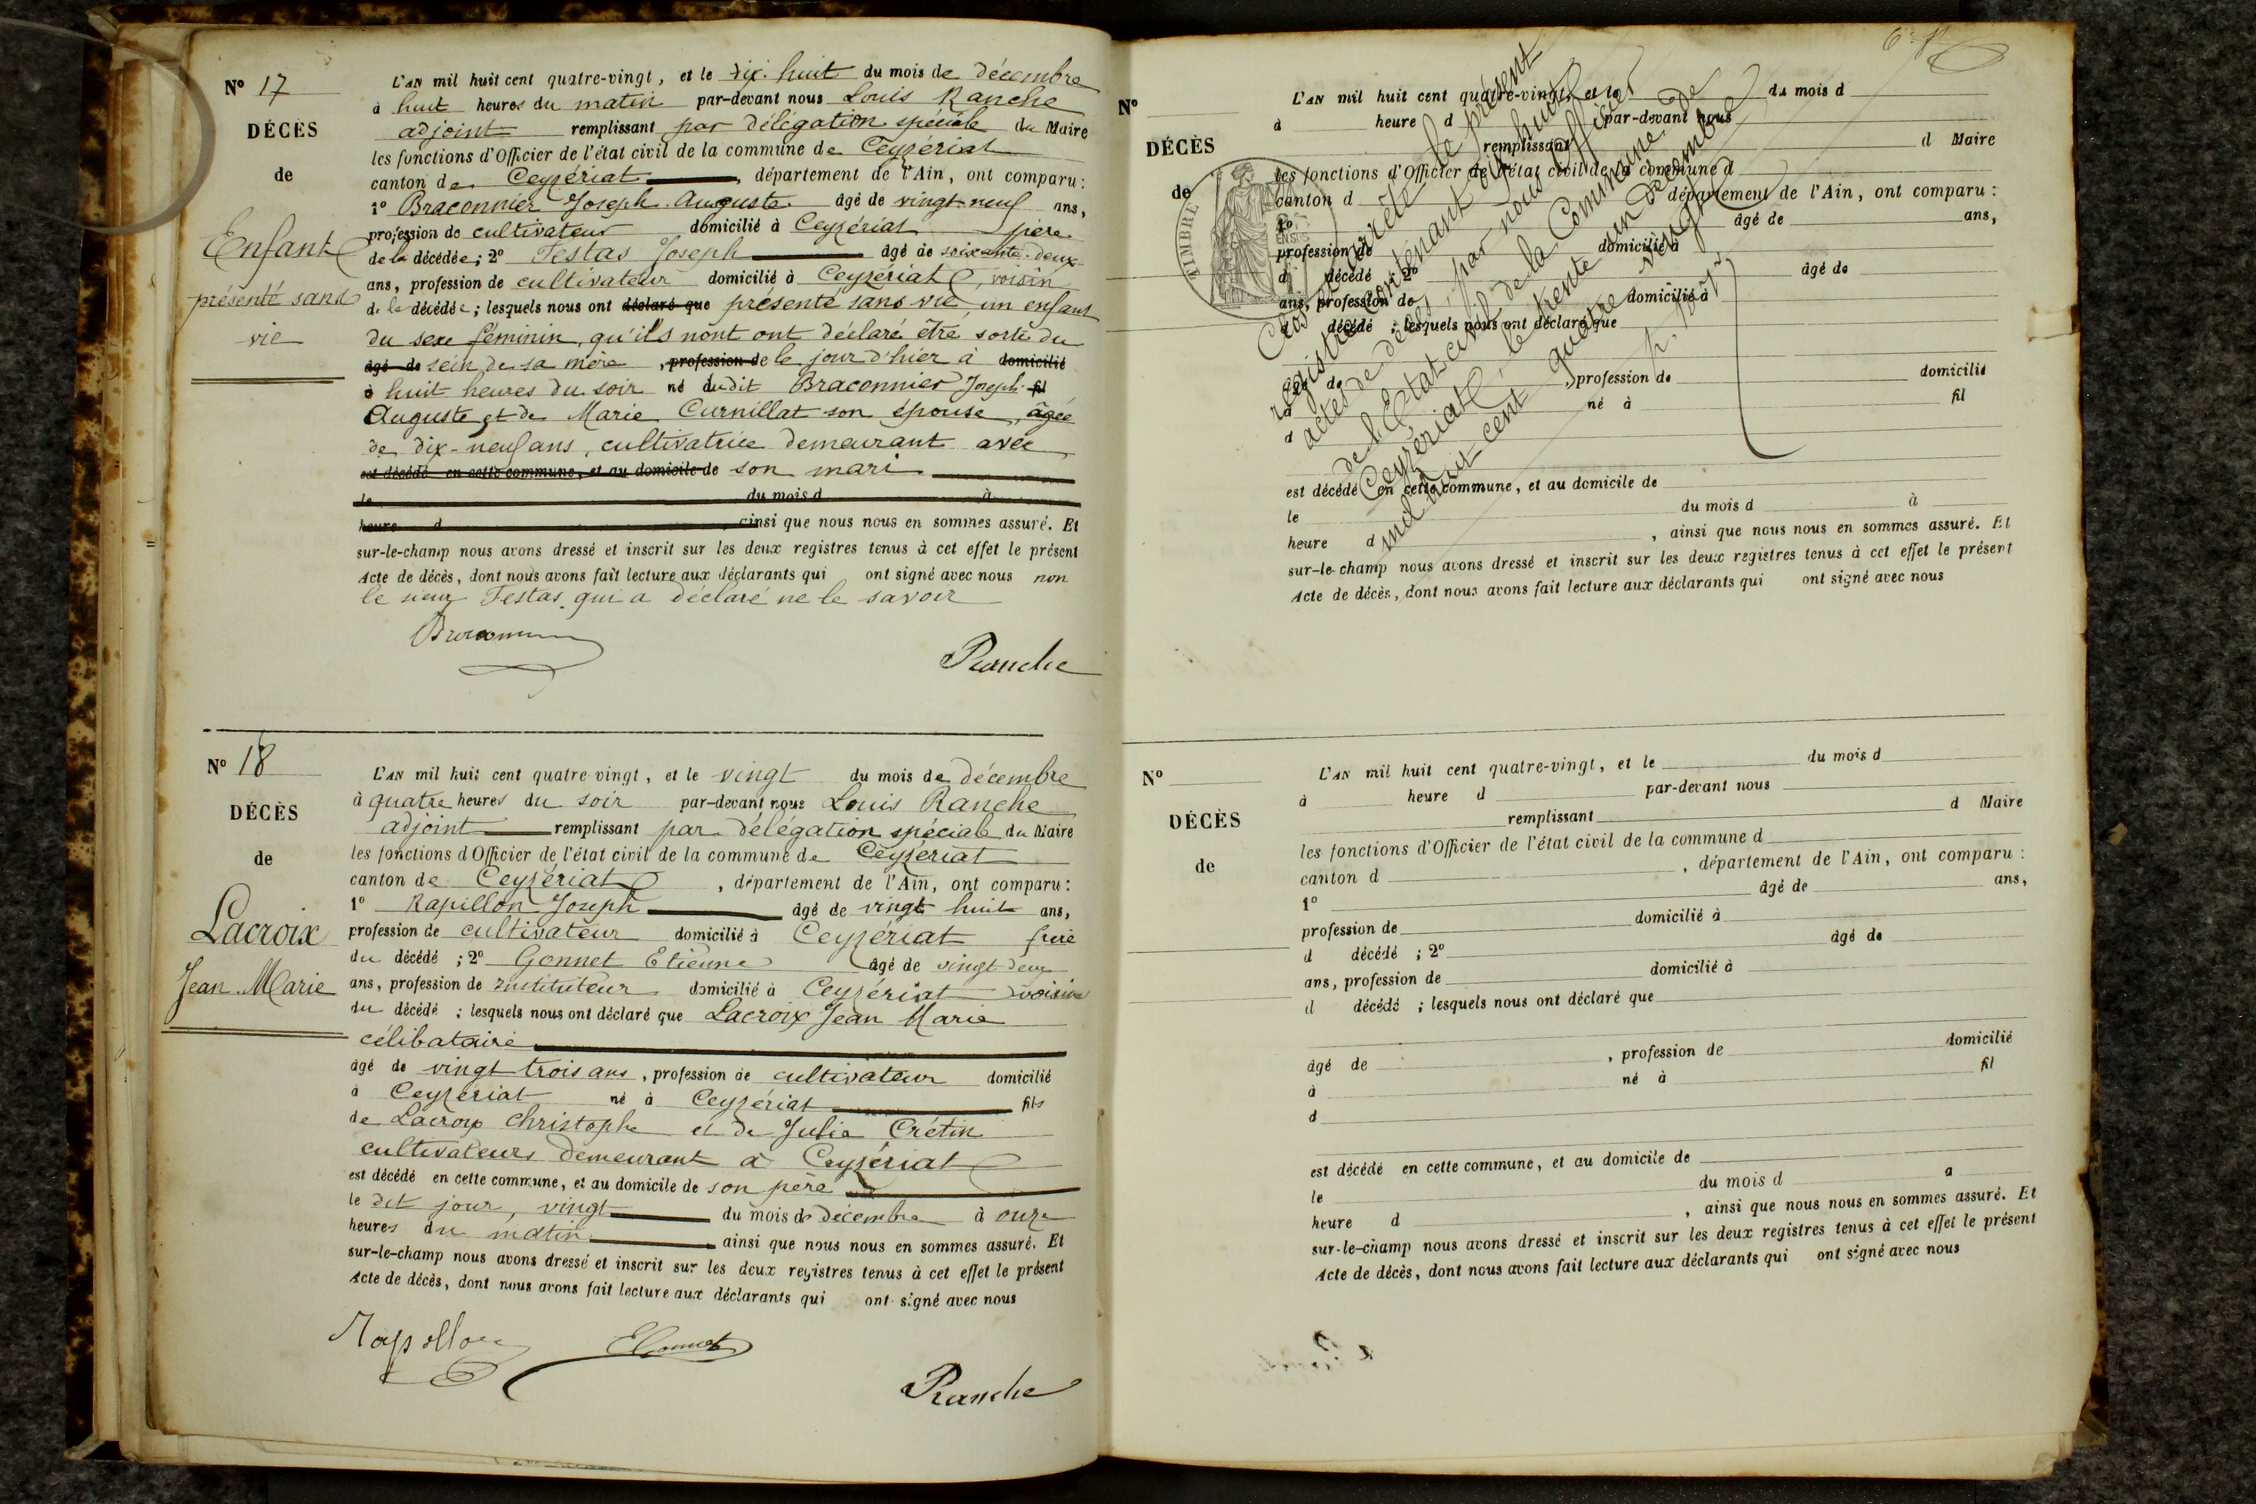 Nº 17
DÉCÈS
de
Enfant
présenté sans
vie
L'AN mil huit cent quatre-vingt, et le dix-huit du mois de décembre
à huit heures du matin par-devant nous Louis Ranche
adjoint remplissant par délégation spéciale du Maire
les fonctions d'Officier de l'état civil de la commune de Ceyzériat
canton de Ceyzériat, département de l'Ain, ont comparu :
1º Braconnier Joseph Auguste âgé de vingt-neuf ans,
profession de cultivateur domicilié à Ceyzériat père
de la décédée ; 2º Festas Joseph âgé de soixante-deux
ans, profession de cultivateur domicilié à Ceyzériat, voisin
de la décédée ; lesquels nous ont déclaré que présenté sans vie, un enfant
du sexe féminin, qu'ils nont ont déclaré être sorti du
âgé de sein de sa mère, profession de le jour d'hier à domicilié
à huit heures du soir né dudit Braconnier Joseph fil
Auguste et de Marie Curnillat son épouse, âgée
de dix-neuf ans, cultivatrice demeurant avec
est décédé en cette commune, et au domicile de son mari
le du mois d à
heure d, ainsi que nous nous en sommes assuré. Et
sur-le-champ nous avons dressé et inscrit sur les deux registres tenus à cet effet le présent
Acte de décès, dont nous avons fait lecture aux déclarants qui ont signé avec nous non
le sieur Festas qui a déclaré ne le savoir
Ranche
Nº 18
DÉCÈS
de
Lacroix
Jean Marie
L'AN mil huit cent quatre-vingt, et le vingt du mois de décembre
à quatre heures du soir par-devant nous Louis Ranche
adjoint remplissant par délégation spéciale du Maire
les fonctions d'Officier de l'état civil de la commune de Ceyzériat
canton de Ceyzériat, département de l'Ain, ont comparu :
1º Rapillon Joseph âgé de vingt huit ans,
profession de cultivateur domicilié à Ceyzériat frère
du décédé ; 2º Gonnet Etienne âgé de vingt-deux
ans, profession de instituteur domicilié à Ceyzériat voisin
du décédé ; lesquels nous ont déclaré que Lacroix Jean Marie
célibataire
âgé de vingt trois ans, profession de cultivateur domicilié
à Ceyzériat né à Ceyzériat fils
de Lacroix Christophe et de Julie Crétin
cultivateurs demeurant à Ceyzériat
est décédé en cette commune, et au domicile de son père
le dit jour, vingt du mois de décembre à onze
heures du matin ainsi que nous nous en sommes assuré. Et
sur-le-champ nous avons dressé et inscrit sur les deux registres tenus à cet effet le présent
Acte de décès, dont nous avons fait lecture aux déclarants qui ont signé avec nous
Rapillon
EGonnet
Ranche
Nº
DÉCÈS
de
TIMBRE
L'AN mil huit cent quatre-vingt, et le du mois d
à heure d par-devant nous
remplissant d Maire
les fonctions d'Officier de l'état civil de la commune d
canton d département de l'Ain, ont comparu :
1º âgé de ans,
profession de domicilié à
d décédé ; 2º âgé de
ans, profession de domicilié à
d décédé ; lesquels nous ont déclaré que
âgé de, profession de domicilié
à né à fil
d
est décédé en cette commune, et au domicile de
le du mois d à
heure d, ainsi que nous nous en sommes assuré. Et
sur-le-champ nous avons dressé et inscrit sur les deux registres tenus à cet effet le présent
Acte de décès, dont nous avons fait lecture aux déclarants qui ont signé avec nous
Clos et arrêté le présent
registre contenant dix huit
actes de décès, par nous Officier
de l'Etat civil de la Commune de
Ceyzériat, le trente un Décembre
mil huit cent quatre vingt
Nº
DÉCÈS
de
L'AN mil huit cent quatre-vingt, et le du mois d
à heure d par-devant nous
remplissant d Maire
les fonctions d'Officier de l'état civil de la commune d
canton d, département de l'Ain, ont comparu :
1º âgé de ans,
profession de domicilié à
d décédé ; 2º âgé de
ans, profession de domicilié à
d décédé ; lesquels nous ont déclaré que
âgé de, profession de domicilié
à né à fil
d
est décédé en cette commune, et au domicile de
le du mois d a
heure d, ainsi que nous nous en sommes assuré. Et
sur-le-champ nous avons dressé et inscrit sur les deux registres tenus à cet effet le présent
Acte de décès, dont nous avons fait lecture aux déclarants qui ont signé avec nous